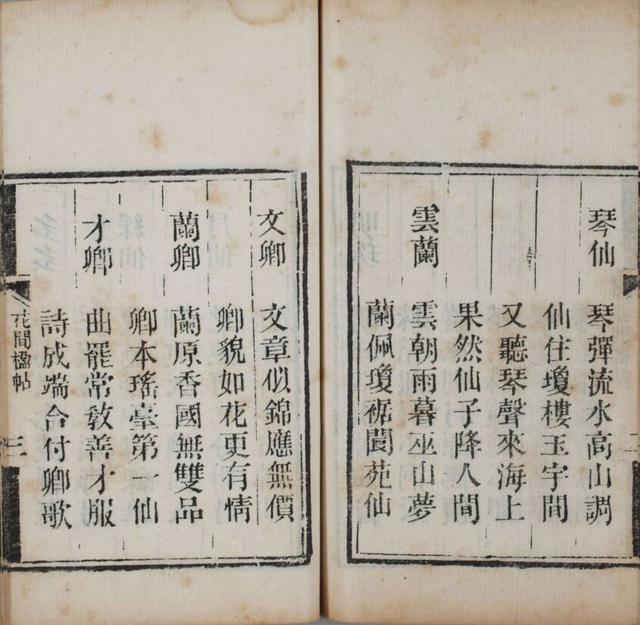 琴仙 琴彈流水高山調
仙住瓊樓玉宇間
又聽琴聲來海上
果然仙子降人間
雲蘭 雲朝雨暮巫山夢
蘭佩瓊裾閬苑仙
文卿 文章似錦應無價
卿貌如花更有情
蘭卿 蘭原香國無雙品
卿本瑤臺第一仙
才卿 曲罷常教善才服
詩成端合付卿歌
花間楹帖 三